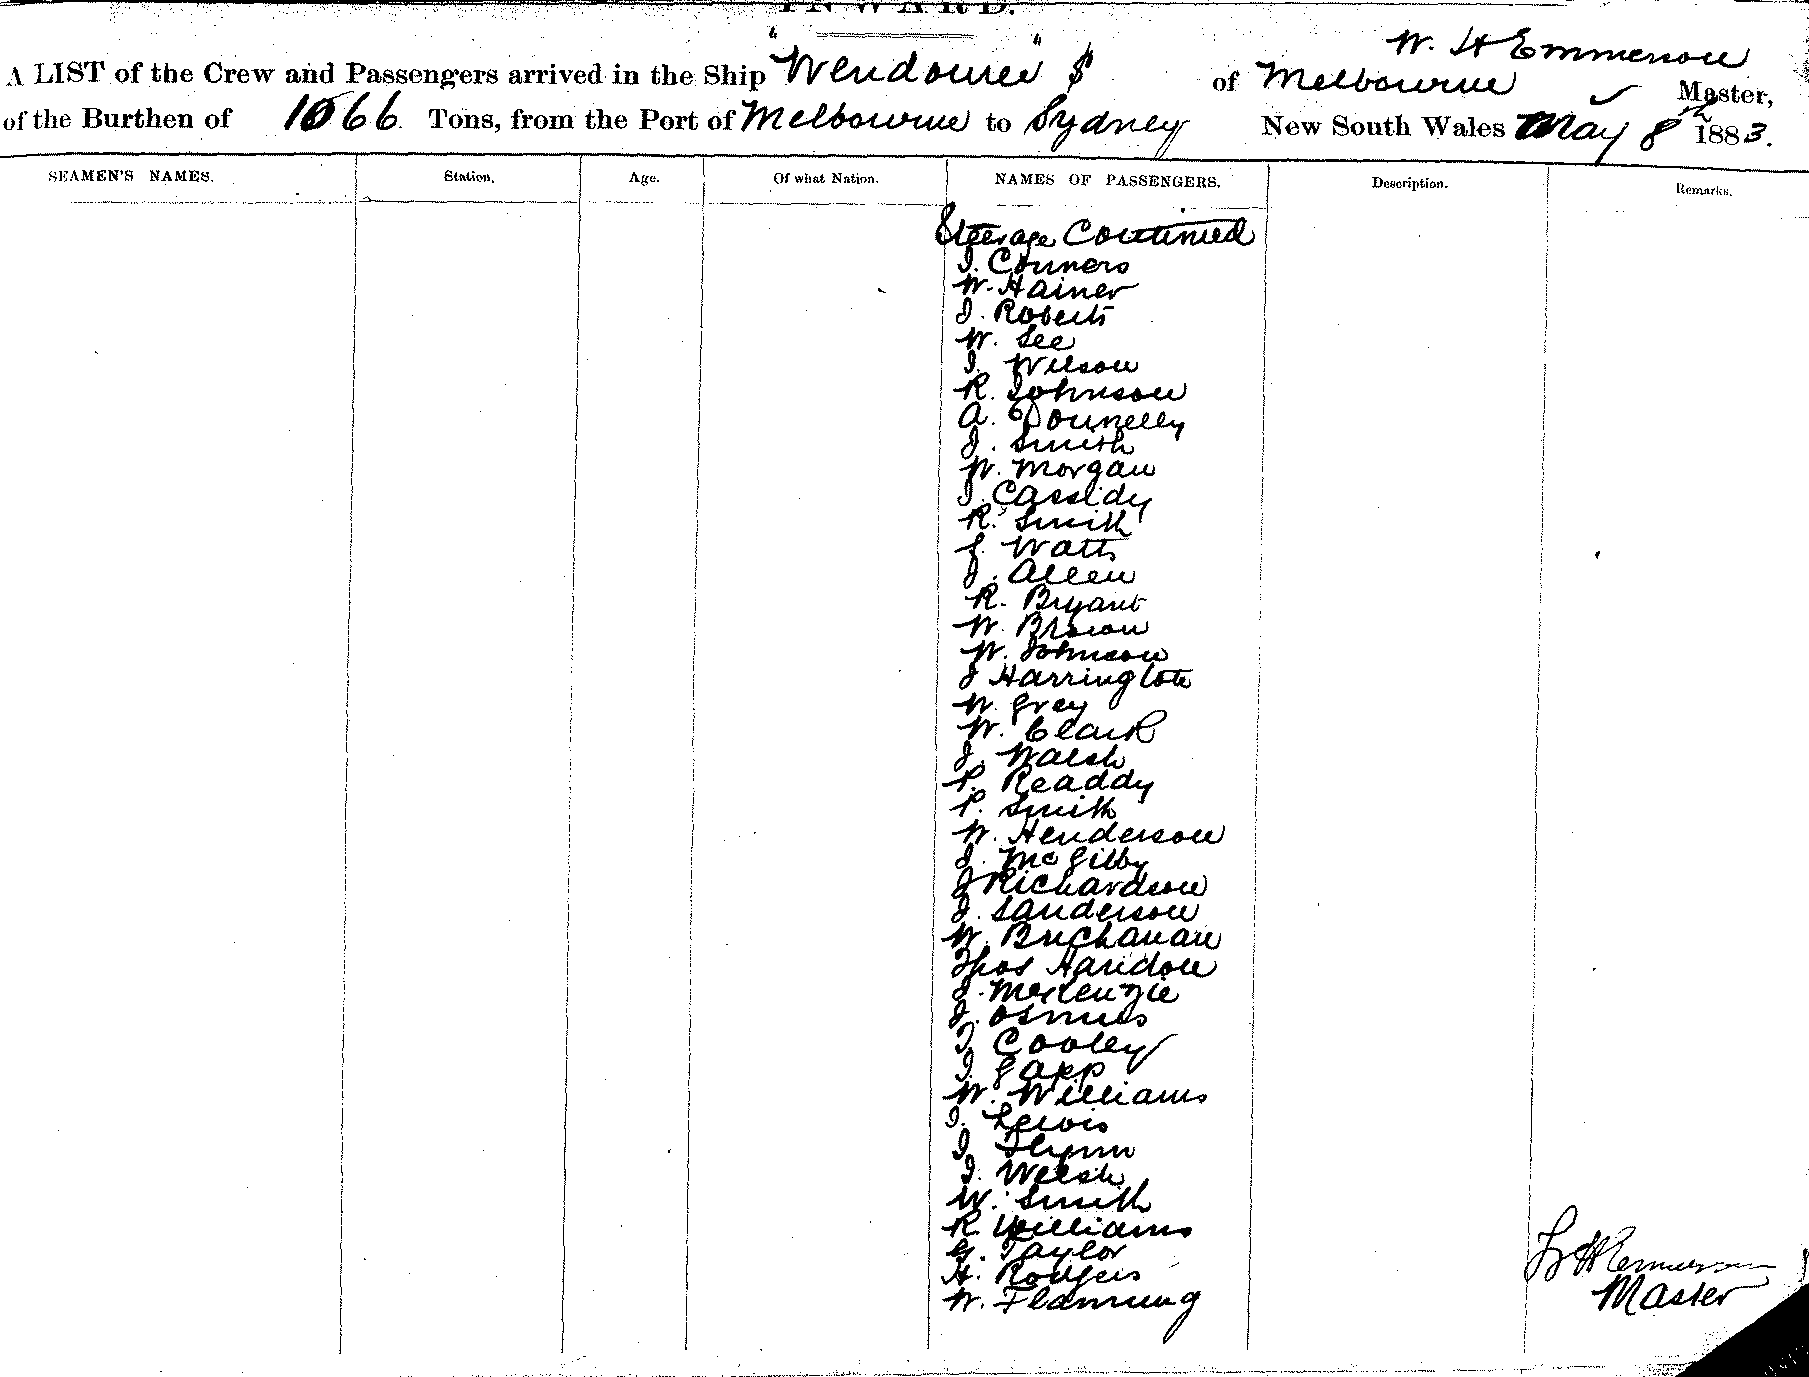 INWARD.
W. H Emmerson
A LIST of the Crew and Passengers arrived in the Ship "Wendouree" S of Melbourne Master,
of the Burthen of 1066 Tons, from the Port of Melbourne to Sydney New South Wales May 8th 1883.
SEAMEN'S NAMES. Station. Age. Of what Nation. NAMES OF PASSENGERS. Description. Remarks.
Steerage Continued
J. Connors
W. Hainer
J. Roberts
W. See
J. Wilson
R. Johnson
A. Donnelly
J. Smith
W. Morgan
J. Cassidy
R. Smith
J. Watts
J. Allen
R. Bryant
W. Brown
W. Johnson
J Harrington
W. Grey
W. Clark
J. Walsh
P. Readdy
P. Smith
W. Henderson
J. McGilby
J Richardson
J. Sanderson
W. Buchanan
Thos
J. McKenzie
J.
J. Cooley
J. Gapp
W. Williams
J. Lewis
J. Flynn
J. Welsh
W. Smith
R. Williams
G. Taylor
H. Rodgers
W. Flamming
W H Emmerson
Master